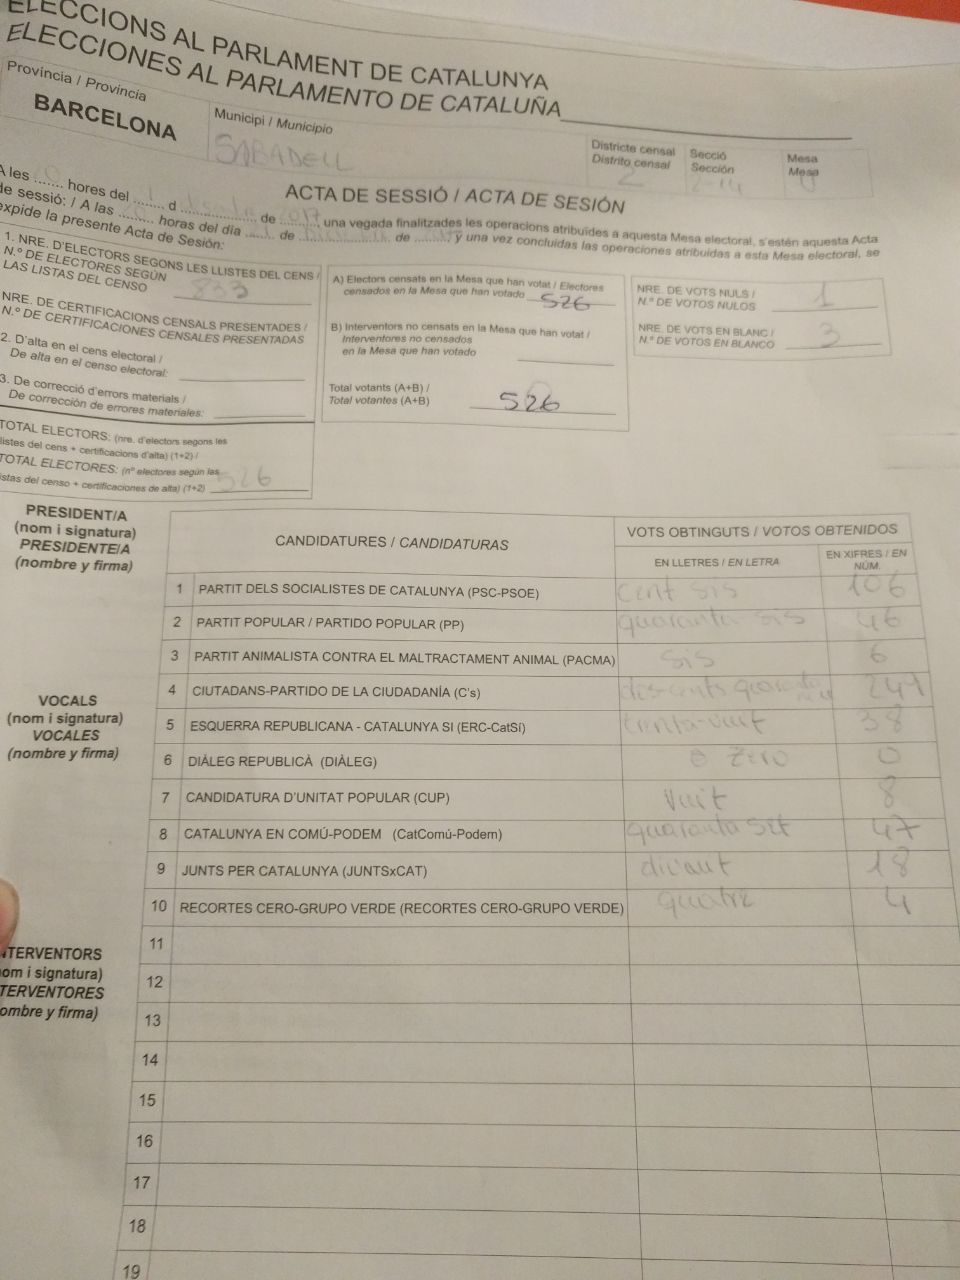 ELECCIONS AL PARLAMENT DE CATALUNYA
ELECCIONES AL PARLAMENTO DE CATALUÑA
Província / Provincia
BARCELONA
Municipi / Municipio
SABADELL
Districte censal
Distrito censal
2
Secció
Sección
Mesa
Mesa
ACTA DE SESSIÓ / ACTA DE SESIÓN
A les ....... hores del ........ d ................... de 2017, una vegada finalitzades les operacions atribuïdes a aquesta Mesa electoral, s'estén aquesta Acta
de sessió: / A las ......... horas del día ....... de ..................... de .......... y una vez concluidas las operaciones atribuidas a esta Mesa electoral, se
expide la presente Acta de Sesión:
1. NRE. D'ELECTORS SEGONS LES LLISTES DEL CENS /
N.º DE ELECTORES SEGÚN
LAS LISTAS DEL CENSO 833
NRE. DE CERTIFICACIONS CENSALS PRESENTADES /
N.º DE CERTIFICACIONES CENSALES PRESENTADAS
2. D'alta en el cens electoral /
De alta en el censo electoral:
3. De correcció d'errors materials /
De corrección de errores materiales:
TOTAL ELECTORS: (nre. d'electors segons les
llistes del cens + certificacions d'alta) (1+2) /
TOTAL ELECTORES: (nº electores según las
listas del censo + certificaciones de alta) (1+2) 526
A) Electors censats en la Mesa que han votat / Electores
censados en la Mesa que han votado 526
B) Interventors no censats en la Mesa que han votat /
Interventores no censados
en la Mesa que han votado
Total votants (A+B) /
Total votantes (A+B) 526
NRE. DE VOTS NULS /
N.º DE VOTOS NULOS 1
NRE. DE VOTS EN BLANC /
N.º DE VOTOS EN BLANCO 3
PRESIDENT/A
(nom i signatura)
PRESIDENTE/A
(nombre y firma)
VOCALS
(nom i signatura)
VOCALES
(nombre y firma)
INTERVENTORS
(nom i signatura)
INTERVENTORES
(nombre y firma)
CANDIDATURES / CANDIDATURAS
VOTS OBTINGUTS / VOTOS OBTENIDOS
EN LLETRES / EN LETRA
EN XIFRES / EN
NÚM.
1 PARTIT DELS SOCIALISTES DE CATALUNYA (PSC-PSOE) cent sis 106
2 PARTIT POPULAR / PARTIDO POPULAR (PP) quaranta sis 46
3 PARTIT ANIMALISTA CONTRA EL MALTRACTAMENT ANIMAL (PACMA) sis 6
4 CIUTADANS-PARTIDO DE LA CIUDADANÍA (C's) doscents quaranta 247
5 ESQUERRA REPUBLICANA - CATALUNYA SI (ERC-CatSí) trenta-vuit 38
6 DIÀLEG REPUBLICÀ (DIÀLEG) zero 0
7 CANDIDATURA D'UNITAT POPULAR (CUP) vuit 8
8 CATALUNYA EN COMÚ-PODEM (CatComú-Podem) quaranta set 47
9 JUNTS PER CATALUNYA (JUNTSxCAT) 18
10 RECORTES CERO-GRUPO VERDE (RECORTES CERO-GRUPO VERDE) quatre 4
11
12
13
14
15
16
17
18
19